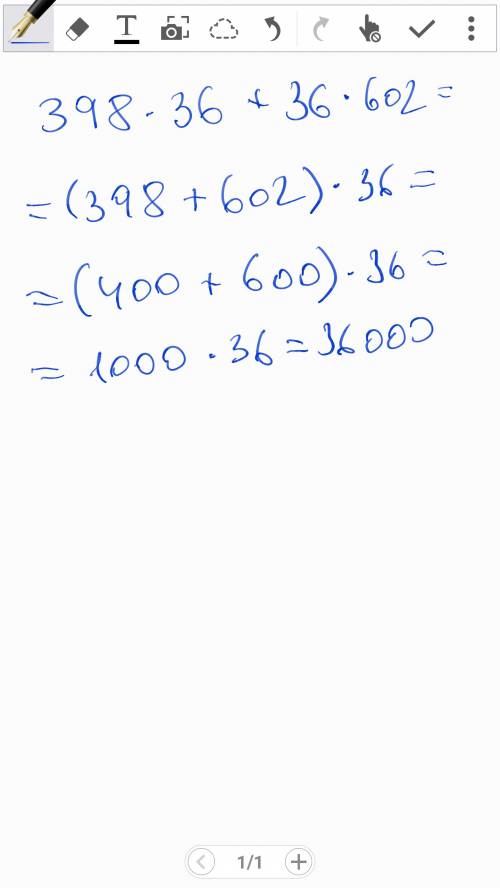 T
398 · 36 + 36 · 602 =
= (398 + 602) · 36 =
= (400 + 600) · 36 =
= 1000 · 36 = 36000
1/1